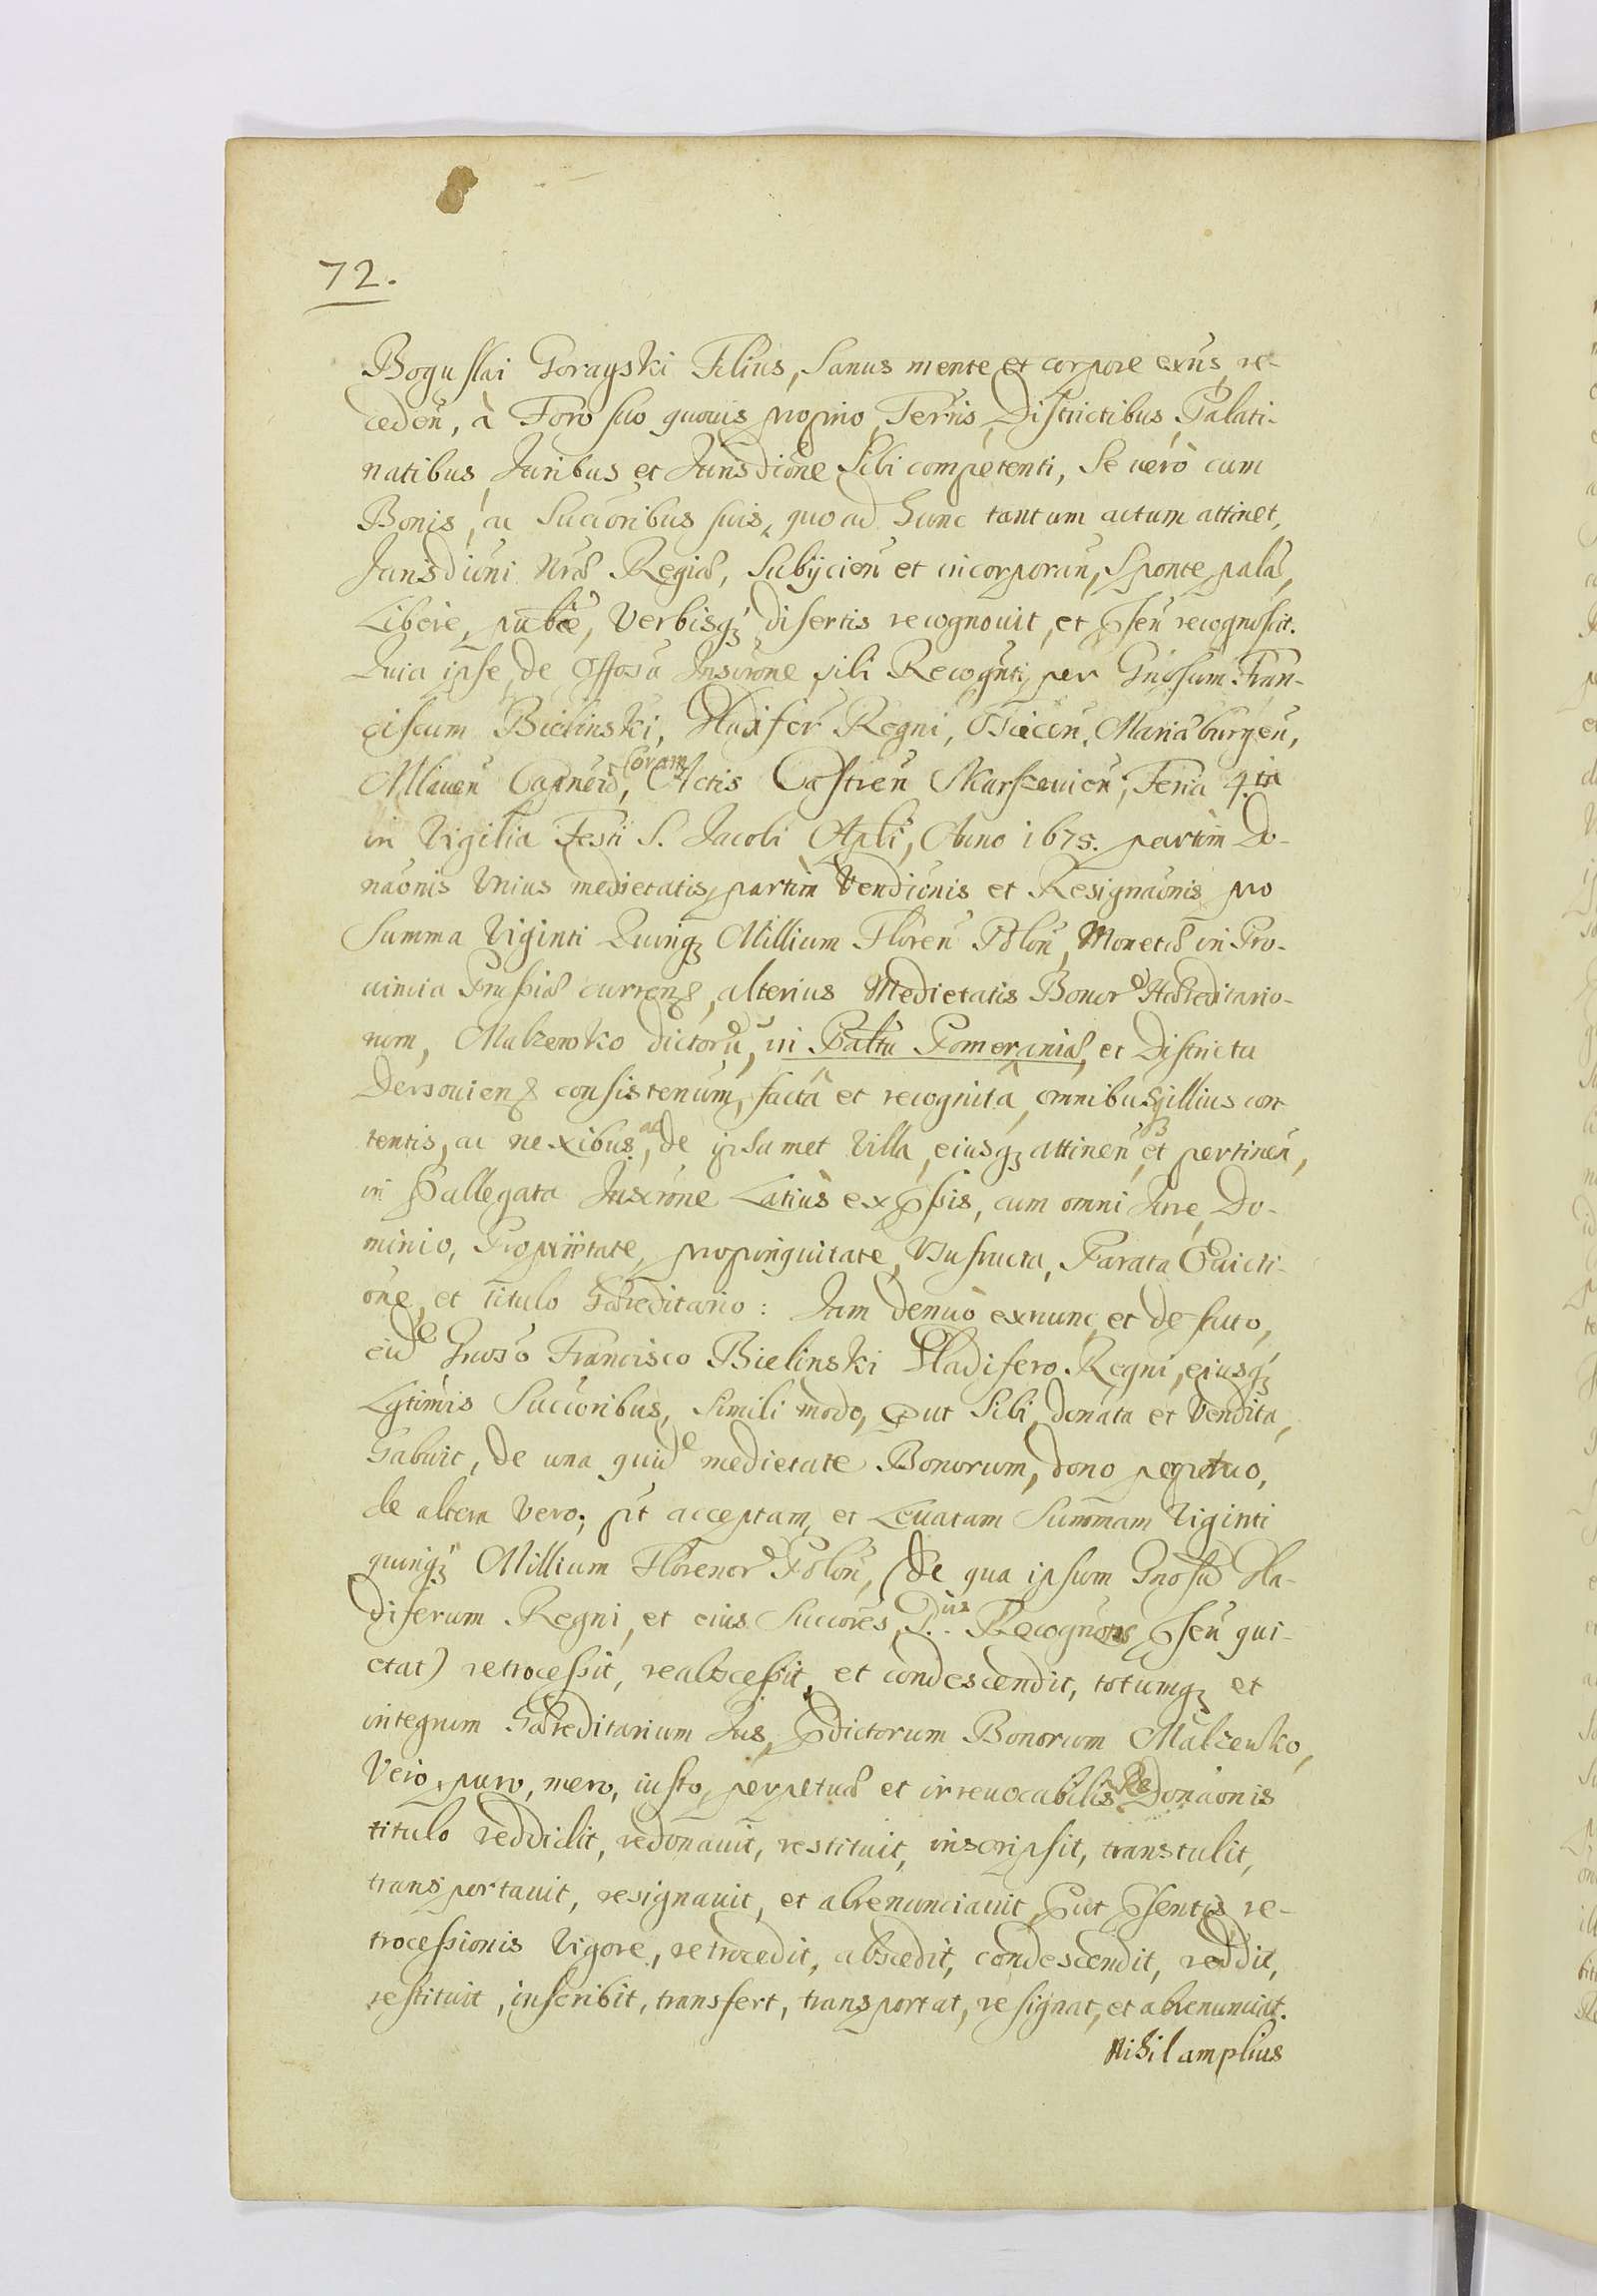 72.
Boguslai Gorayski Filius, Sanus mente et corpore exn̄s, re-
ceden̄, à Foro suo quouis proprio, Terris, Districtibus, Palati-
natibus, Juribus et Jurisdic̄one Sibi competenti, Se uerò cum
Bonis, ac Succōribus suis, quo ad hunc tantum actum attinet,
Jurisdic̄oni Nr̄æ Regiæ, Subijcien̄ et incorporan̄, Sponte, palā,
Liberè, publicè, Verbisq; disertis recognouit, et p̄sen̄ recognoscit.
Quia ipse, de Inscr̄one sibi Recogn̄ti, per Gn̄osum Fran-
ciscum Bielinski, Gladifer̄ Regni, Mariæburgen̄,
Mlauen̄ Capneū, Coram Actis Castren̄ Skarszeuien̄, Feria 4.ta
in Vigilia Festi S. Jacobi Apl̄i, Anno 1675. partim Do-
nāonis Unius medietatis, partim Vendic̄onis et Resignāonis pro
Summa Viginti Quinq; Millium Floren̄ Polon̄, Monetæ in Pro-
uincia Prussiæ curren, alterius Medietatis Bonor Hæreditario-
rum, Malzewko dictorū, in Paltu Pomeraniæ, et Districtu
Dersouien consisten̄um, factâ et recognitâ, omnibusq; illius con-
tentis, ac nexibus, ac de ipsamet Villa, eiusq; attinen̄, et pertinen̄,
in p̄allegata Inscr̄one Latius exp̄ssis, cum omni Jure, Do-
minio, Proprietate, propinquitate, Usufructu, Parata Euicti-
one, et titulo Hæreditario: Jam denuò exnunc et de facto,
eid Gn̄oso Francisco Bielinski Gladifero Regni, eiusq;
Lgtimis Succōribus, Simili modo, p̄ut Sibi donata et Vendita,
habuit, de una quid medietate Bonorum, dono perpetuo,
de altera Vero, p̄t acceptam, et Leuatam Summam Viginti
quinq; Millium Florenor Polon̄, (de qua ipsum Gn̄osū Gla-
diferum Regni, et eius Succōres, D.nus Recogn̄os p̄sen̄ qui-
etat) retrocessit, reabscessit, et condescendit, totumq; et
integrum Hæreditarium Jus, p̄dictorum Bonorum Malzewko,
Vero, puro, mero, iusto, perpetuæ et irreuocabilis Re Donāonis
titulo reddidit, redonauit, restituit, inscripsit, transtulit,
transportauit, resignauit, et abrenunciauit, p̄ut p̄sentis re-
trocessionis Vigore, retrocedit, abscedit, condescendit, reddit,
restituit, inscribit, transfert, transportat, resignat, et abrenunciat.
Nihil amplius